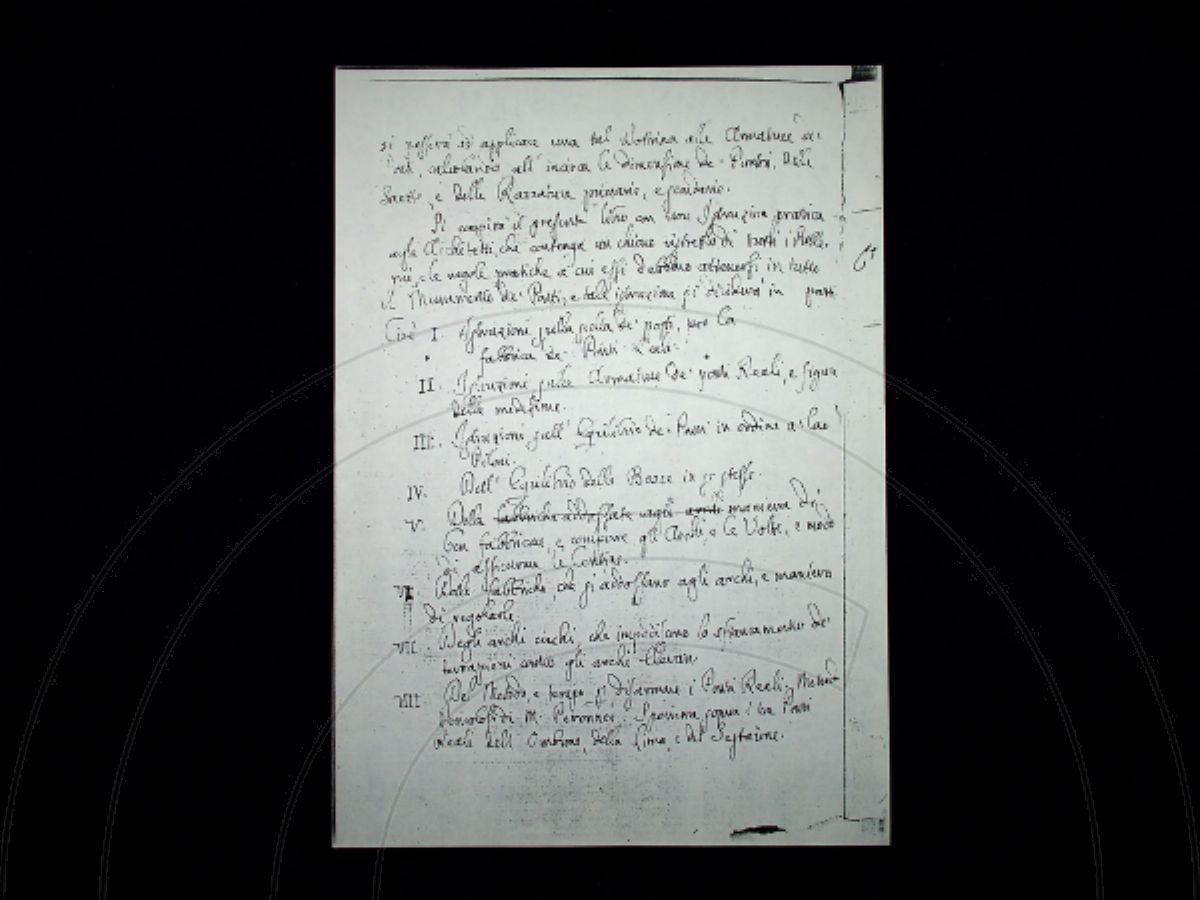 si potterà di applicare una tal dottrina alle Armature de'
calcolando all' incirca le dimensione de' Puntoni, delle
Saette, e delle Razzature primarie, e
Si compirà il presente libro con una Istruzione pratica
agli Architetti, che contenga un chiaro ristretto di tutti i
e le regole pratiche a' cui essi debbono attenersi in tutto
il de' Ponti, e tale istruzione si dividerà in parti
Cioè I. Istruzioni sulla scelta de' posti, per la
fabbrica de' Ponti
II. Istruzioni sulle Armature de' ponti Reali, e figura
delle medesime.
III. Istruzioni sull' Equilibrio de' Ponti in ordine a' loro
Piloni.
IV. Dell' Equilibrio delle Bozze in se stesse.
V. Della fabbriche addossate agli archi maniera di
ben fabbricare, e comporre gli Archi, e le Volte, e modo
di assicurare le Centine.
VI. Delle fabbriche, che si addossano agli archi, e maniera
di regolarle.
VII. Degli archi ciechi, che impediscono lo sfiancamento de'
contro gli archi
VIII. Del Metodo, e tempo di disarmare i Ponti Reali. Metodo
di M. Peronnet. sopra i tre Ponti
Reali dell' Ombrone, della Lima, e del Sestaione.